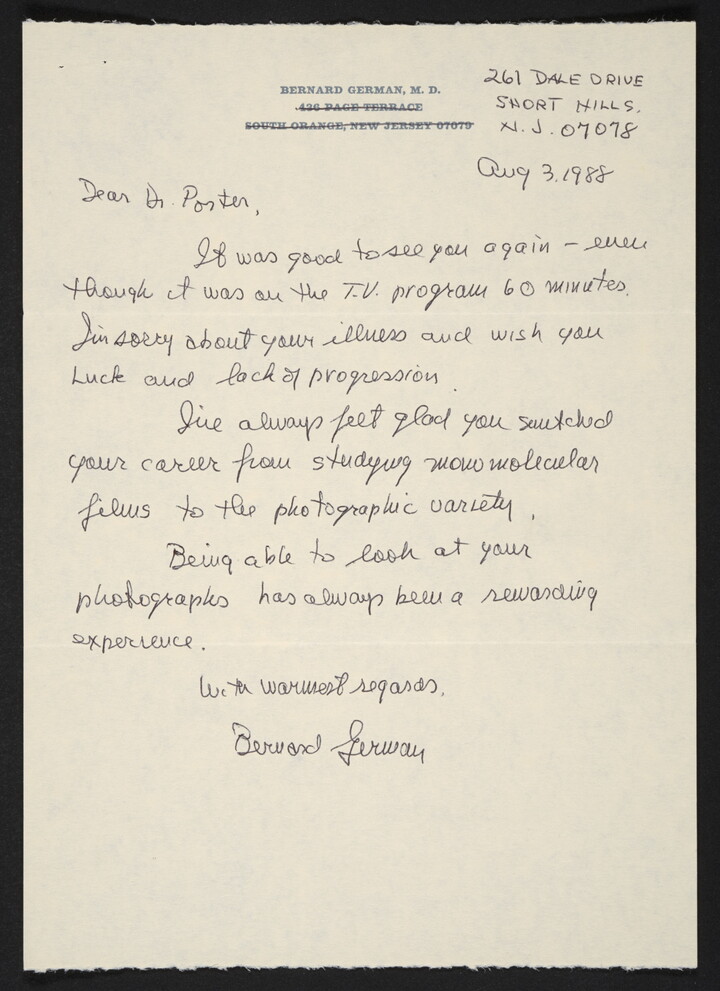 BERNARD GERMAN, M. D.
436 PAGE TERRACE
SOUTH ORANGE, NEW JERSEY 07079
261 DALE DRIVE
SHORT HILLS.
N. J. 07078
Aug 3, 1988
Dear Dr. Porter,
It was good to see you again – even
though it was on the T.V. program 60 minutes.
I'm sorry about your illness and wish you
Luck and lack of progression.
I've always felt glad you switched
your career from studying monomolecular
films to the photographic variety.
Being able to look at your
photographs has always been a rewarding
experience.
With warmest regards,
Bernard German